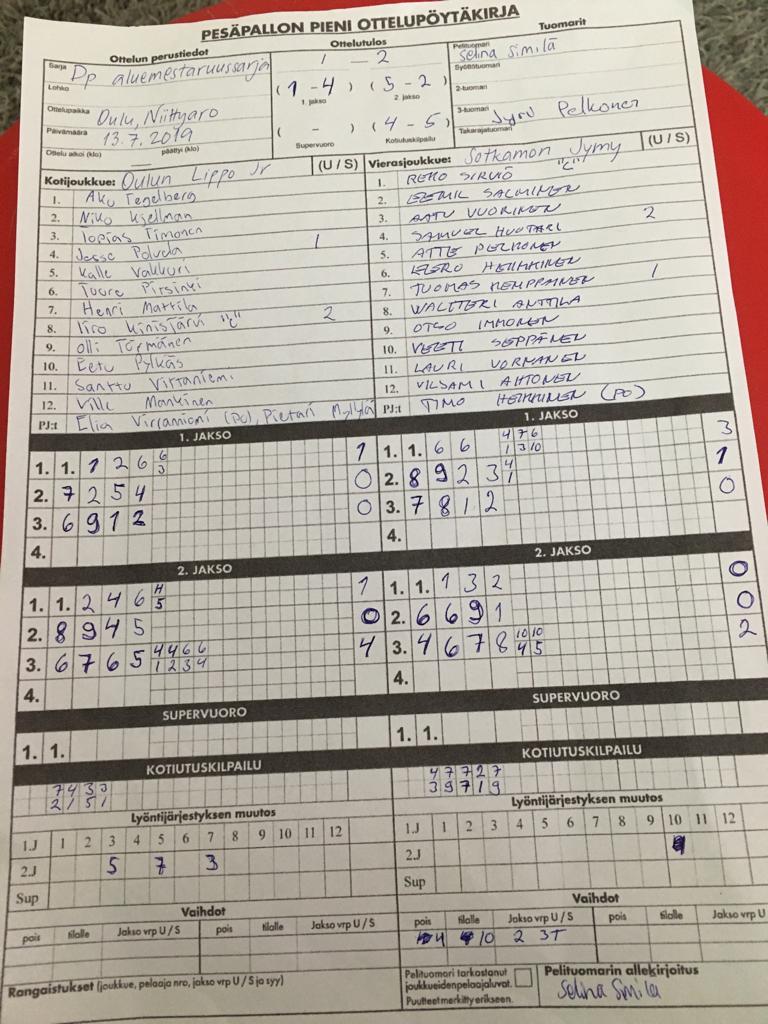 PESÄPALLON PIENI OTTELUPÖYTÄKIRJA
Ottelun perustiedot
Sarja Dp aluemestaruussarja
Lohko
Ottelupaikka Oulu, Niittyaro
Päivämäärä 13.7.2019
Ottelu alkoi (klo) päättyi (klo)
Ottelutulos
1 - 2
(1 - 4) (5 - 2)
1. jakso 2. jakso
( - ) (4 - 5)
Supervuoro Kotiutuskilpailu
Tuomarit
Pelituomari Selina Similä
Syöttötuomari
2-tuomari
3-tuomari Jyru Pelkonen
Takarajatuomari
Kotijoukkue: Oulun Lippo Jr (U / S)
1. Aku Tegelberg
2. Niko Kjellman
3. Topias Timonen
4. Jesse Poluda 1
5. Kalle Vakkuri
6. Tuure Pirsinki
7. Henri Mattila
8. Kiro Kinisjärvi "C" 2
9. Olli Törmänen
10. Eetu Pylkäs
11. Santtu Virtaniemi
12. Ville Mankinen
PJ:t Elia Virtaniemi (PO), Pietari Myllylä
Vierasjoukkue: Sotkamon Jymy (U / S)
1. REKO SIRVIÖ "C"
2. EEMIL SALMINEN
3. AATU VUORINEN
4. SAMUEL HUOTARI 2
5. ATTE PELKONEN
6. EERO HEIKKINEN
7. TUOMAS KEMPPAINEN 1
8. WALTTERI ANTTILA
9. OTSO IMMONEN
10. VEETI SEPPÄNEN
11. LAURI VORNANEN
12. VILJAMI AHTONEN
PJ:t TIMO HEIKKINEN (PO)
1. JAKSO
1. 1. 1 2 6 6 1
3
2. 7 2 5 4 0
3. 6 9 1 2 0
4.
1. JAKSO
1. 1. 6 6 4 7 6 3
1 3 10
2. 8 9 2 3 4 1
1
3. 7 8 1 2 0
4.
2. JAKSO
1. 1. 2 4 6 H 1
5
2. 8 9 4 5 0
3. 6 7 6 5 4 4 6 6 4
1 2 3 4
4.
2. JAKSO
1. 1. 1 3 2 0
2. 6 6 9 1 0
3. 4 6 7 8 10 10 2
4 5
4.
SUPERVUORO
1. 1.
SUPERVUORO
1. 1.
KOTIUTUSKILPAILU
7 4 3 3
2 1 5 1
KOTIUTUSKILPAILU
4 7 7 2 7
3 9 7 1 9
Lyöntijärjestyksen muutos
1.J 1 2 3 4 5 6 7 8 9 10 11 12
2.J 5 7 3
Sup
Lyöntijärjestyksen muutos
1.J 1 2 3 4 5 6 7 8 9 10 11 12
2.J
Sup
Vaihdot
pois tilalle Jakso vrp U / S pois tilalle Jakso vrp U / S
Vaihdot
pois tilalle Jakso vrp U / S pois tilalle Jakso vrp U
4 10 2 3T
Rangaistukset (joukkue, pelaaja nro, jakso vrp U / S ja syy)
Pelituomari tarkastanut
joukkueidenpelaajaluvat.
Puutteet merkitty erikseen.
Pelituomarin allekirjoitus
Selina Similä